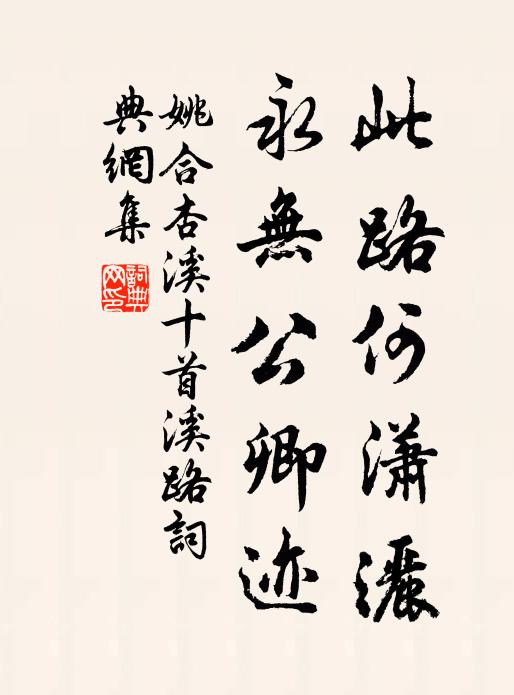 此路何瀟灑
永無公卿迹
姚合杏溪十首溪路詞
典網集
詞典網印